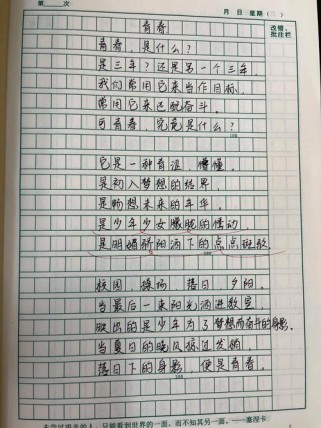 第 次
月 日 星期( )
改错、
批注栏
青春
青春,是什么?
是三年?还是另一个三年,
我们常用它来当作目标,
常用它来 奋斗。
可青春,究竟是什么?
100
它是一种青涩,懵懂,
是初入梦想的 界,
是畅想未来的年华,
是少年少女朦胧的悸动,
是明媚骄阳洒下的点点斑驳
校园,操场,落日,夕阳,
当最后一束阳光洒进教室,
映出的是少年为了梦想而奋斗的身影,
当夏日的晚风掠过发梢
落日下的身影,便是青春。
未学过用美的人,只能看到世界的一面,而不知其另一面。——塞涅卡